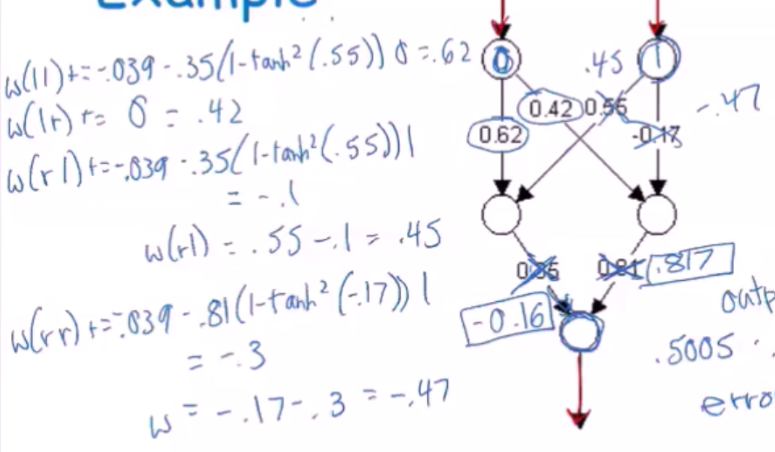 Example
w(11)+=-.039 - .35(1-tanh²(.55)) 0 = .62
w(1r) += 0 = .42
w(r1)+=-.039 - .35(1-tanh²(.55)) 1
= -.1
w(r1) = .55 -.1 = .45
w(rr)+=-.039 - .81(1-tanh²(-.17)) 1
= -.3
w = -.17 - .3 = -.47
0
.45
1
0.42
0.55
-.47
0.62
-0.17
0.35
0.81
.817
-0.16
outp
.5005
erro